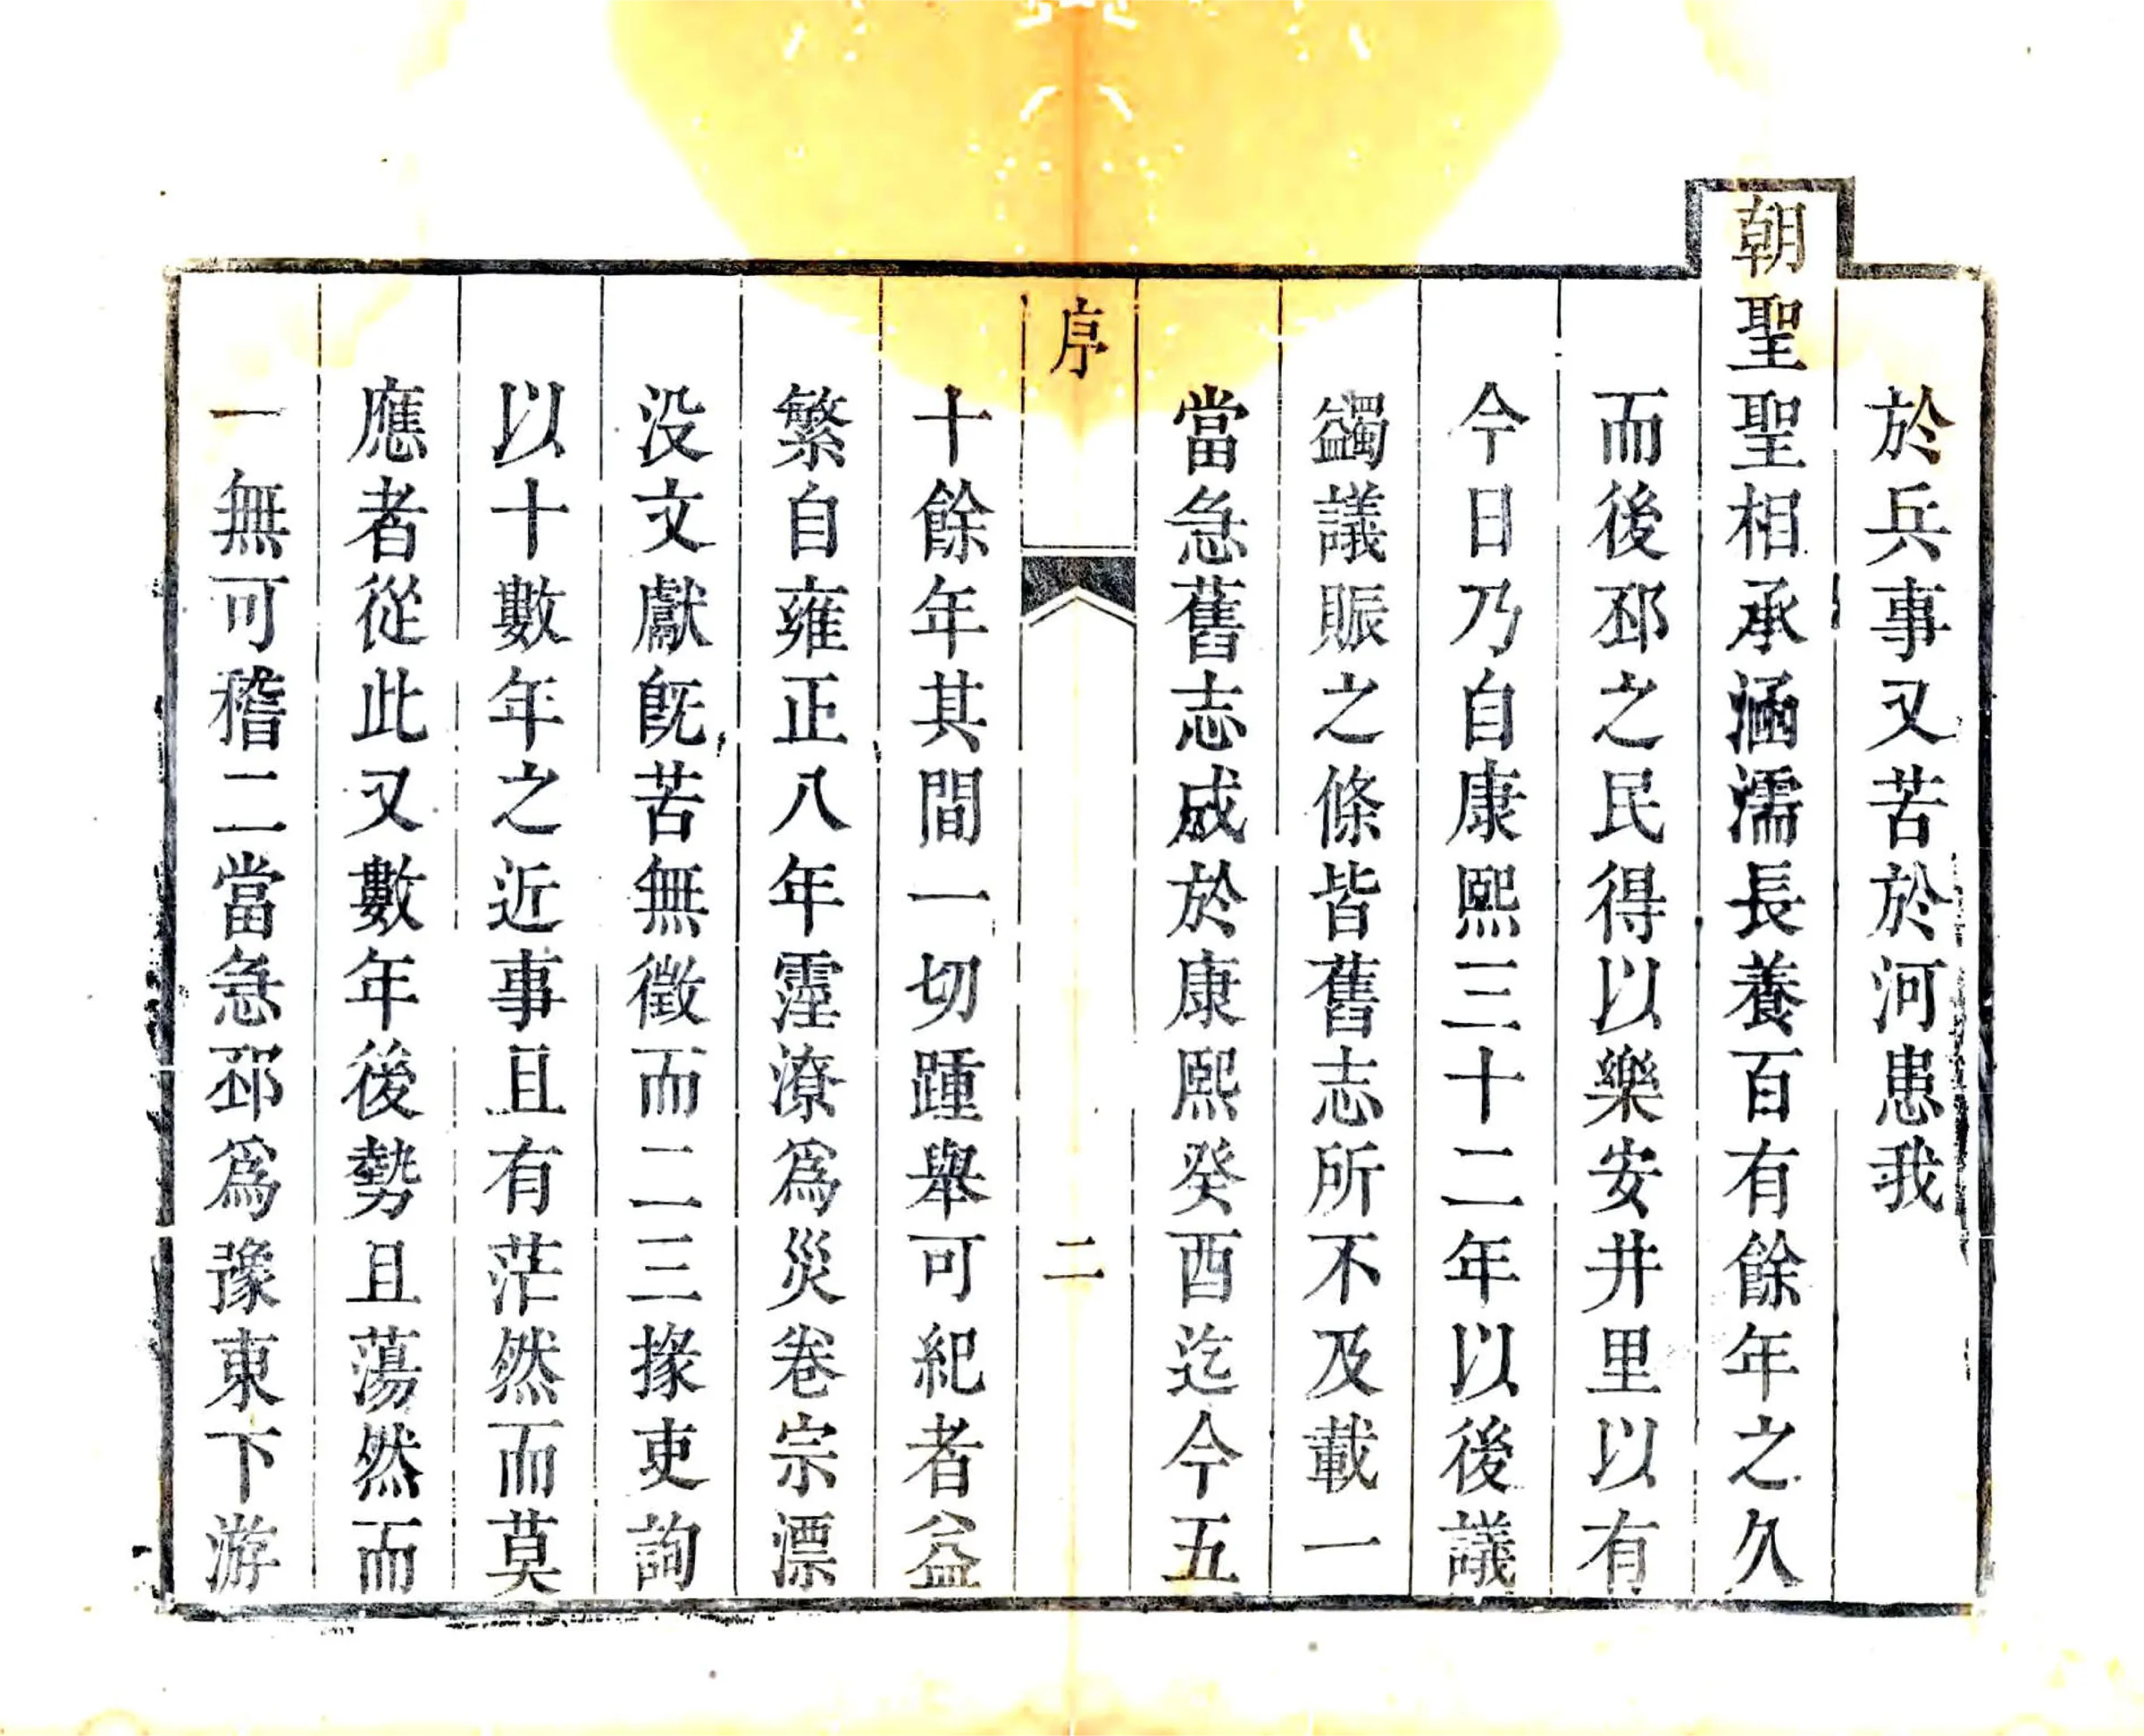 於兵事又苦於河患我
朝聖聖相承涵濡長養百有餘年之久
而後邳之民得以樂安井里以有
今日乃自康熙三十二年以後議
蠲議賑之條皆舊志所不及載一
當急舊志成於康熙癸酉迄今五
序
二
十餘年其間一切踵舉可紀者益
繁自雍正八年霪潦為災卷宗漂
没文獻旣苦無徵而二三掾吏詢
以十數年之近事且有茫然而莫
應者從此又數年後勢且蕩然而
一無可稽二當急邳爲豫東下游